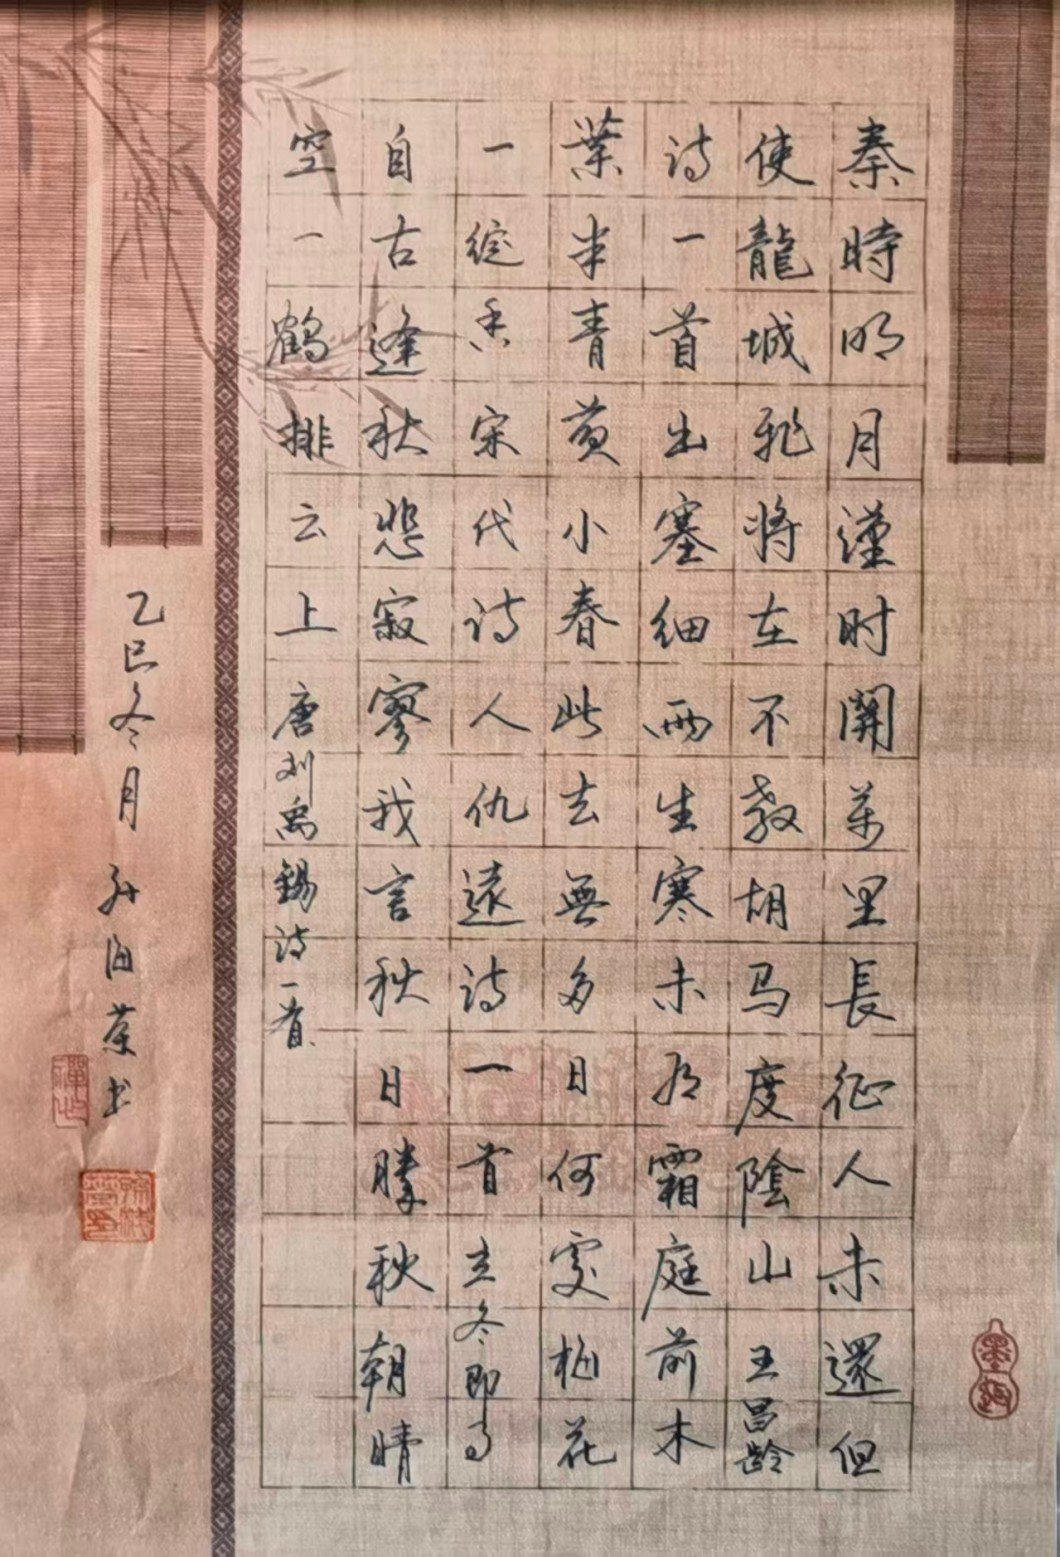 秦時明月漢时關萬里長征人未還但
使龍城飛将在不教胡马度陰山王昌龄
诗一首出塞细雨生寒未有霜庭前木
葉半青黄小春此去無多日何處梅花
一绽香宋代诗人仇遠诗一首立冬即事
自古逢秋悲寂寥我言秋日勝秋朝晴
空一鹤排云上唐刘禹錫诗一首
乙巳冬月孙海书
禪心